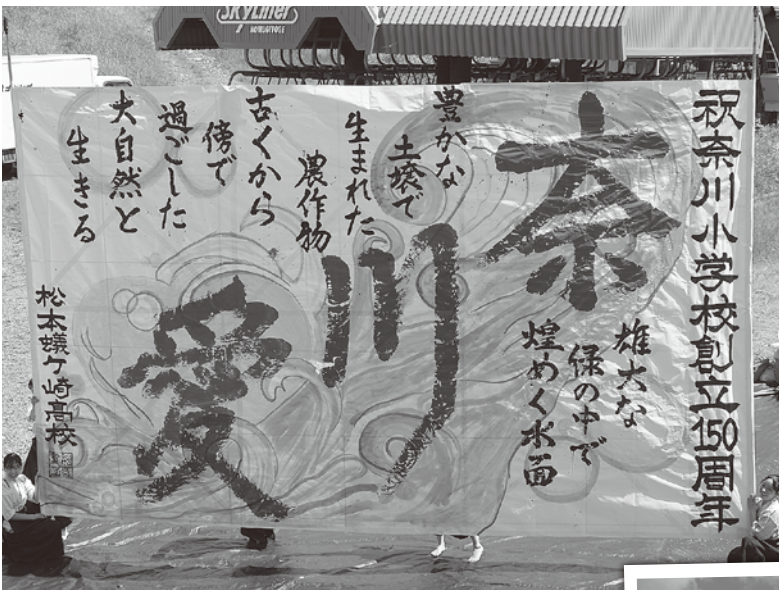 SKYLINER
祝奈川小学校創立150周年
奈川愛
雄大な
緑の中で
煌めく水面
豊かな
土壌で
生まれた
農作物
古くから
傍で
過ごした
大自然と
生きる
松本蟻ケ崎高校